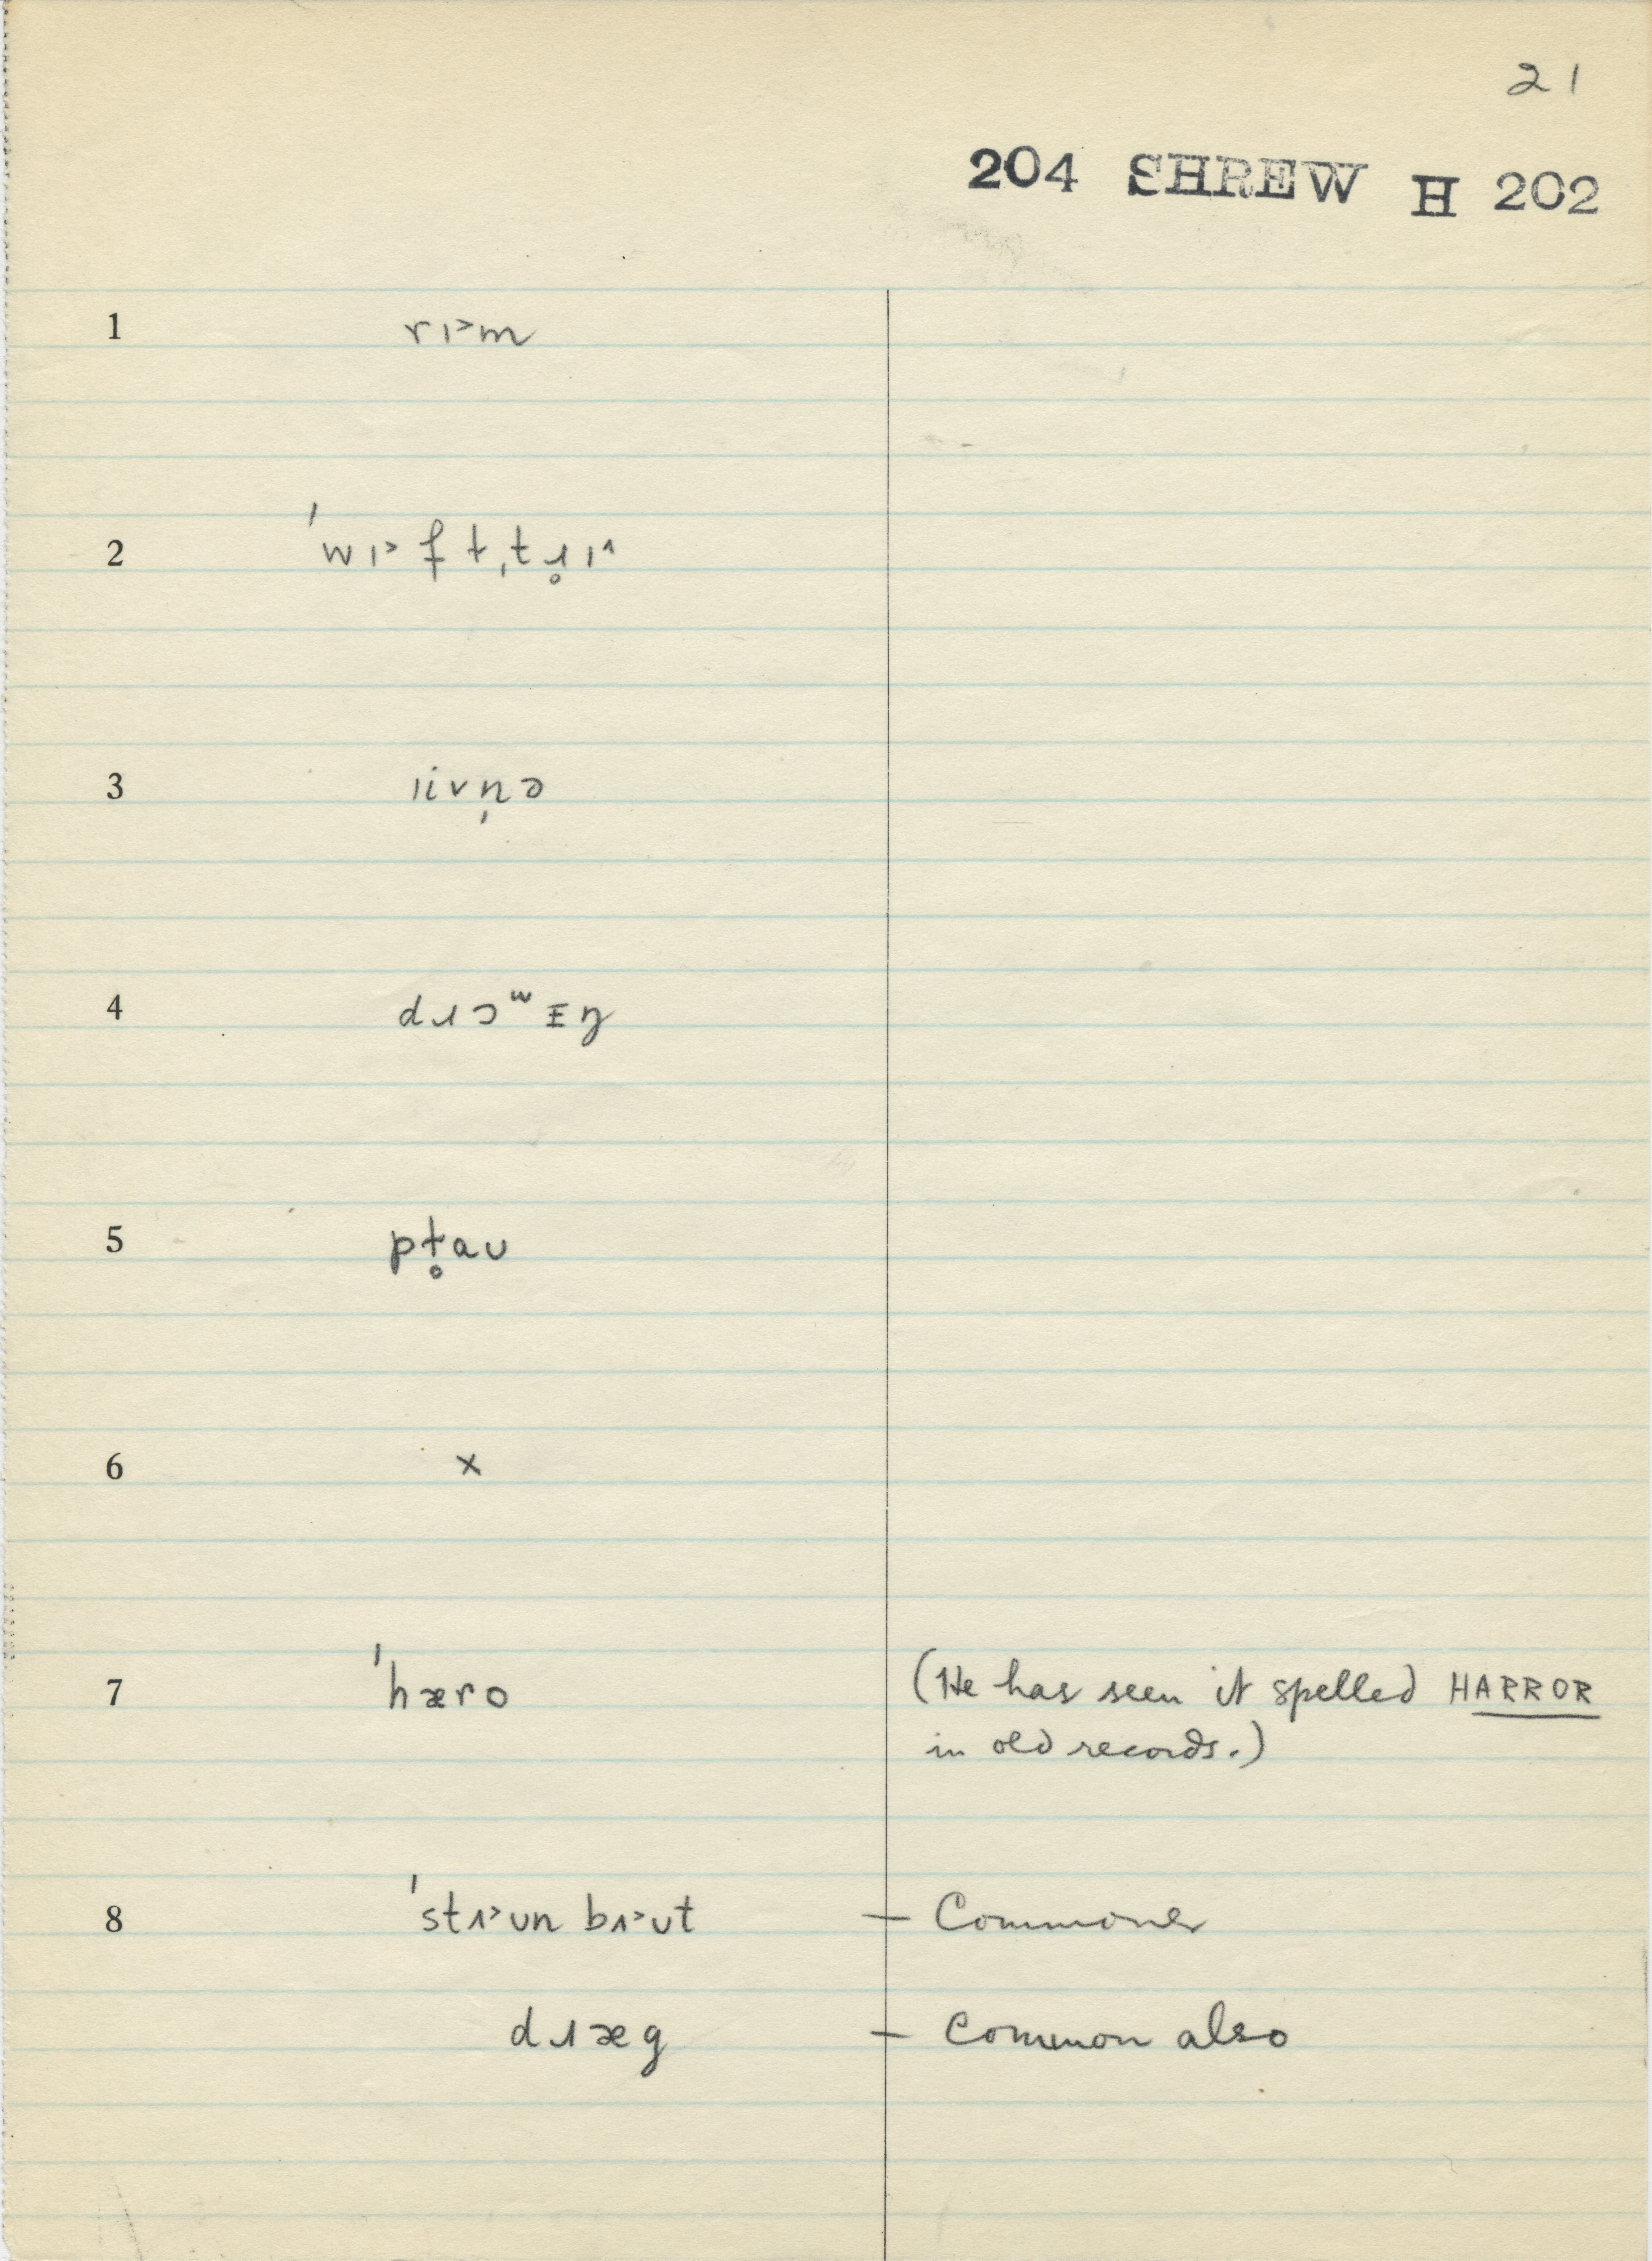 21
204 SHREW H 202
1 rɪ˃m
2 ˈwɪ˃f t̩tɹ̥ɪ˄
3 ɪivn̩ə
4 dɹɔʷɪŋ
5 pɫ̥aʊ
6 x
7 ˈhæro (He has seen it spelled HARROR
in old records.)
8 ˈstʌ˃ʊn bʌ˃ʊt – Commoner
dɹæg – Common also